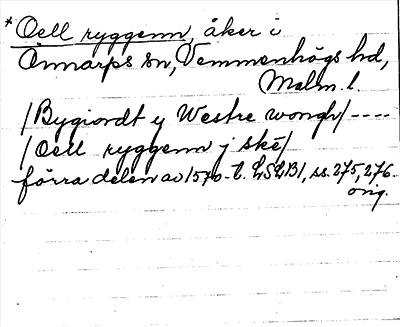 *Oell ryggenn, åker i
Önnarps sn, Vemmenhögs hd,
Malm. l.
/Bygiordt y Westre wongh/----
/Oell ryggenn j ske/
förra delen av 1570-t. LSLB1, ss. 275, 276.
orig.